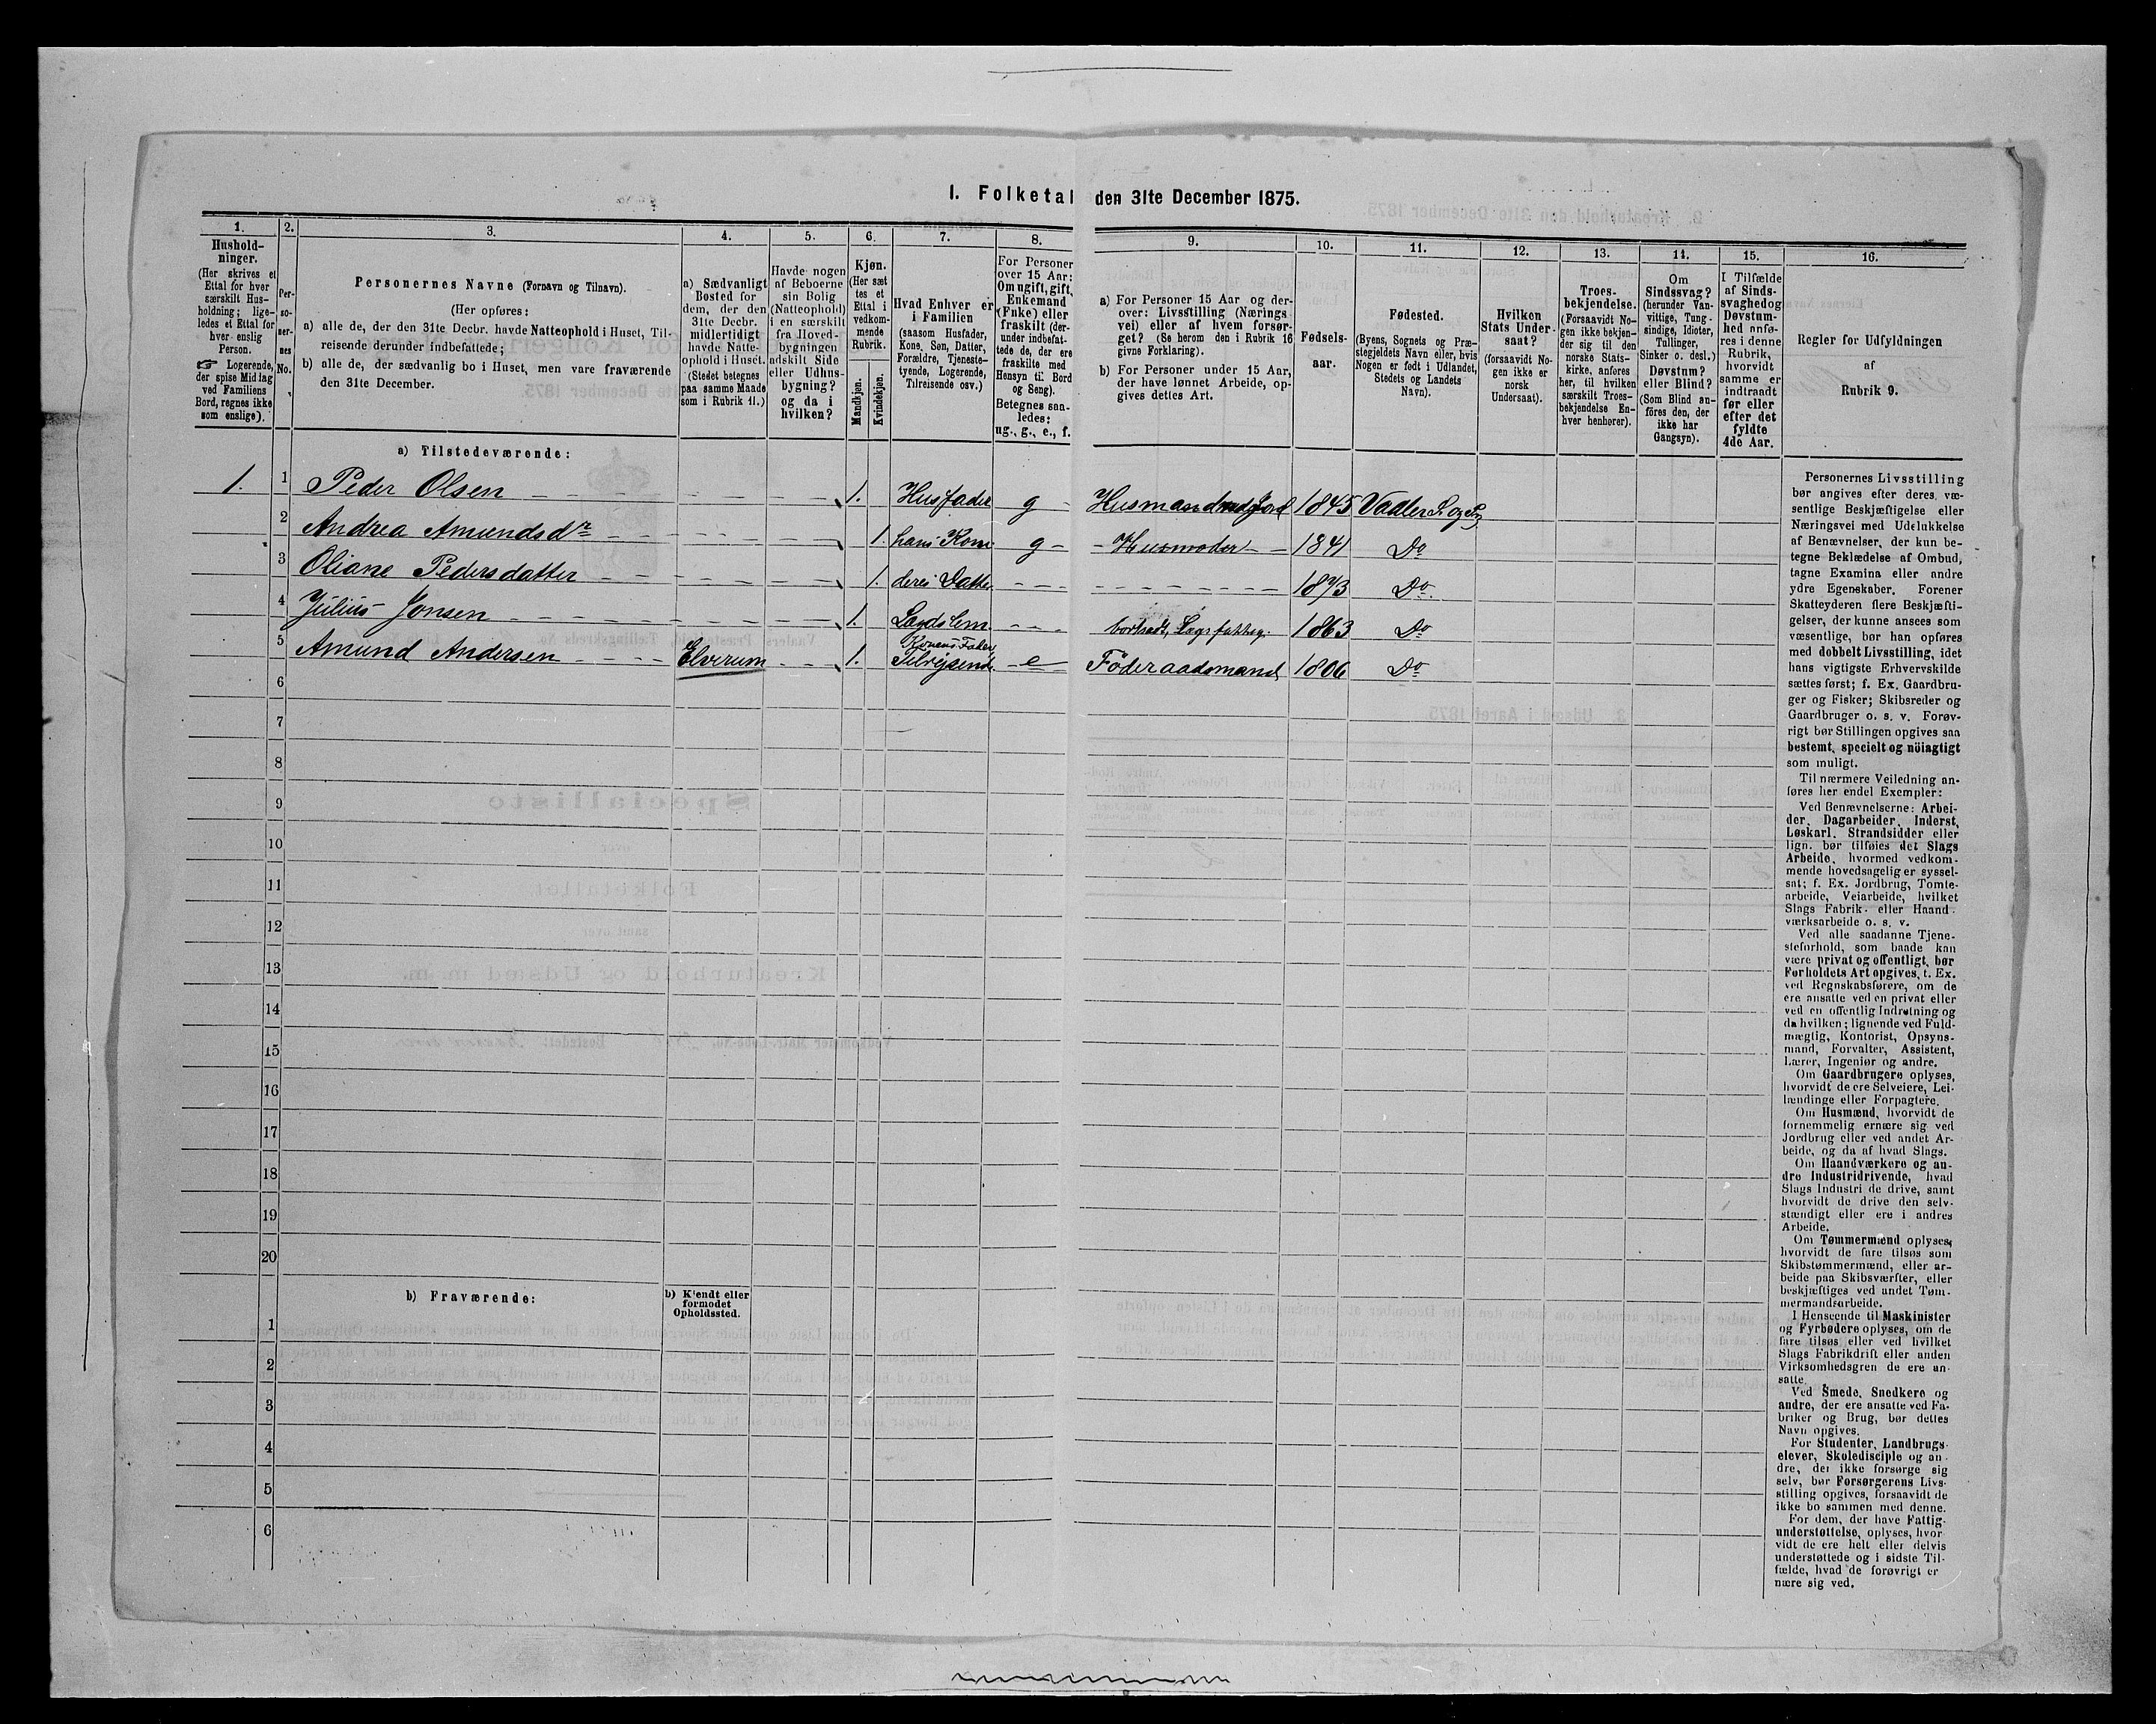 I. Folketal den 31te December 1875.
1.
Hushold-
ninger.
(Her skrives et
Ettal for hver
særskilt Hus-
holdning; lige-
ledes et Ettal for
hver enslig
Person.
Logerende,
der spise Middag
ved Familiens
Bord, regnes ikke
som enslige).
2.
Per-
so-
ner-
nes
No.
3.
Personernes Navne (Fornavn og Tilnavn).
(Her opføres:
a) alle de, der den 31te Decbr. havde Natteophold i Huset, Til-
reisende derunder indbefattede;
b) alle de, der sædvanlig bo i Huset, men vare fraværende
den 31te December.
4.
a) Sædvanligt
Bosted for
dem, der den
31te Decbr.
midlertidigt
havde Natte-
ophold i Huset.
(Stedet betegnes
paa samme Maade
som i Rubrik 11.)
5.
Havde nogen
af Beboerne
sin Bolig
(Natteophold)
i en særskilt
fra Hoved-
bygningen
adskilt Side
eller Udhus-
bygning?
og da i
hvilken?
6.
Kjøn.
(Her sæt
tes et
Ettal i
vedkom-
mende
Rubrik.
Mandkjøn.
Kvindekjøn.
7.
Hvad Enhver er
i Familien
(saasom Husfader,
Kone, Søn, Datter,
Forældre, Tjeneste-
tyende, Logerende,
Tilreisende osv.)
8.
For Personer
over 15 Aar:
Om ugift, gift,
Enkemand
(Enke) eller
fraskilt (der-
under indbefat-
tede de, der ere
fraskilte med
Hensyn til Bord
og Seng).
Betegnes saa-
ledes:
ug., g., e., f.
9.
a) For Personer 15 Aar og der-
over: Livsstilling (Nærings
vei) eller af hvem forsør-
get? (Se herom den i Rubrik 16
givne Forklaring).
b) For Personer under 15 Aar,
der have lønnet Arbeide, op-
gives dettes Art.
10.
Fødsels-
aar.
11.
Fødested.
(Byens, Sognets og Præ-
stegjeldets Navn eller, hvis
Nogen er født i Udlandet,
Stedets og Landets
Navn).
12.
Hvilken
Stats Under-
saat?
(forsaavidt No-
gen ikke er
norsk
Undersaat).
13.
Troes-
bekjendelse.
(Forsaavidt No-
gen ikke bekjen-
der sig til den
norske Stats-
kirke, anføres
her, til hvilken
særskilt Troes-
bekjendelse En-
hver henhører).
14.
Om
Sindssvag?
(herunder Van-
vittige, Tung-
sindige, Idioter,
Tullinger,
Sinker o. desl.)
Døvstum?
eller Blind?
(Som Blind an-
føres den, der
ikke har
Gangsyn).
15.
I Tilfælde
af Sinds-
svaghed og
Døvstum-
hed anfø-
res i denne
Rubrik,
hvorvidt
samme er
indtraadt
før eller
efter det
fyldte
4de Aar.
16.
Regler for Udfyldningen
af
Rubrik 9.
a) Tilstedeværende:
1. 1 Peder Olsen 1. Husfader g Husmand med Jord 1845 Vaaler S. og Pg
2 Andrea Amundsdr 1. hans Kone g Husmoder 1841 Do
3 Oliane Pedersdatter 1. deres Datter 1873 Do
4 Julius Jonsen 1. Lægdslem bortsadt, Lægsfattig. 1863 Do
5 Amund Andersen Elverum 1. Konens Fader Tilreisende e Føderaadsmand 1806 Do
6
7
8
9
10
11
12
13
14
15
16
17
18
19
20
b) Fraværende:
b) Kjendt eller
formodet
Opholdssted.
1
2
3
4
5
6
Personernes Livsstilling
bør angives efter deres væ-
sentlige Beskjæftigelse eller
Næringsvei med Udelukkelse
af Benævnelser, der kun be-
tegne Beklædelse af Ombud,
tagne Examina eller andre
ydre Egenskaber. Forener
Skatteyderen flere Beskjæfti-
gelser, der kunne ansees som
væsentlige, bør han opføres
med dobbelt Livsstilling, idet
hans vigtigste Erhvervskilde
sættes først; f. Ex. Gaardbru-
ger og Fisker; Skibsreder og
Gaardbruger o. s. v. Forøv-
rigt bør Stillingen opgives saa
bestemt, specielt og nöiagtigt
som muligt.
Til nærmere Veiledning an-
føres her endel Exempler:
Ved Benævnelserne: Arbei-
der, Dagarbeider, Inderst,
Løskarl, Strandsidder eller
lign. bør tilføies det Slags
Arbeide, hvormed vedkom-
mende hovedsagelig er syssel-
sat; f. Ex. Jordbrug, Tomte-
arbeide, Veiarbeide, hvilket
Slags Fabrik- eller Haand-
værksarbeide o. s. v.
Ved alle saadanne Tjene-
steforhold, som baade kan
være privat og offentligt, bør
Forholdets Art opgives, t. Ex.
ved Regnskabsførere, om de
ere ansatte ved en privat eller
ved en offentlig Indretning og
da hvilken; lignende ved Fuld-
mægtig, Kontorist, Opsyns-
mand, Forvalter, Assistent,
Lærer, Ingeniør og andre.
Om Gaardbrugere oplyses,
hvorvidt de ere Selveiere, Lei-
lændinge eller Forpagtere.
Om Husmænd, hvorvidt de
fornemmelig ernære sig ved
Jordbrug eller ved andet Ar-
beide, og da af hvad Slags.
Om Haandværkere og an-
dre Industridrivende, hvad
Slags Industri de drive, samt
hvorvidt de drive den selv-
stændigt eller ere i andres
Arbeide.
Om Tømmermænd oplyses,
hvorvidt de fare tilsøs som
Skibstømmermænd, eller ar-
beide paa Skibsværfter, eller
beskjæftiges ved andet Tøm-
mermandsarbeide.
I Henseende til Maskinister
og Fyrbødere oplyses, om de
fare tilsøs eller ved hvilket
Slags Fabrikdrift eller anden
Virksomhedsgren de ere an-
satte.
Ved Smede, Snedkere og
andre, der ere ansatte ved Fa-
briker og Brug, bør dettes
Navn opgives.
For Studenter, Landbrugs-
elever, Skoledisciple og an-
dre, der ikke forsørge sig
selv, bør Forsørgerens Livs-
stilling opgives, forsaavidt de
ikke bo sammen med denne.
For dem, der have Fattig-
understøttelse, oplyses, hvor-
vidt de ere helt eller delvis
understøttede og i sidste Til-
fælde, hvad de forøvrigt er
nære sig ved.